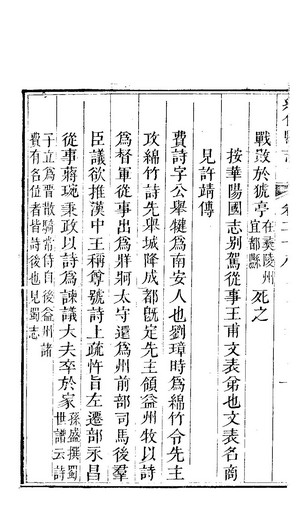 戰敗於猇亭在夷陵州宜都縣死之
按華陽國志別駕從事王甫文表弟也文表名商
見許靖傳
費詩字公舉犍為南安人也劉璋時為綿竹令先主
攻綿竹詩先舉城降成都既定先主領益州牧以詩
為督軍從事出為牂牁太守還為州前部司馬後羣
臣議欲推漢中王稱尊號詩上疏忤旨左遷部永昌
從事蔣琬秉政以詩為諫議大夫卒於家孫盛撰蜀世譜云詩
子立為晉散騎常侍自後益州諸
費有名位者皆詩後也見蜀志